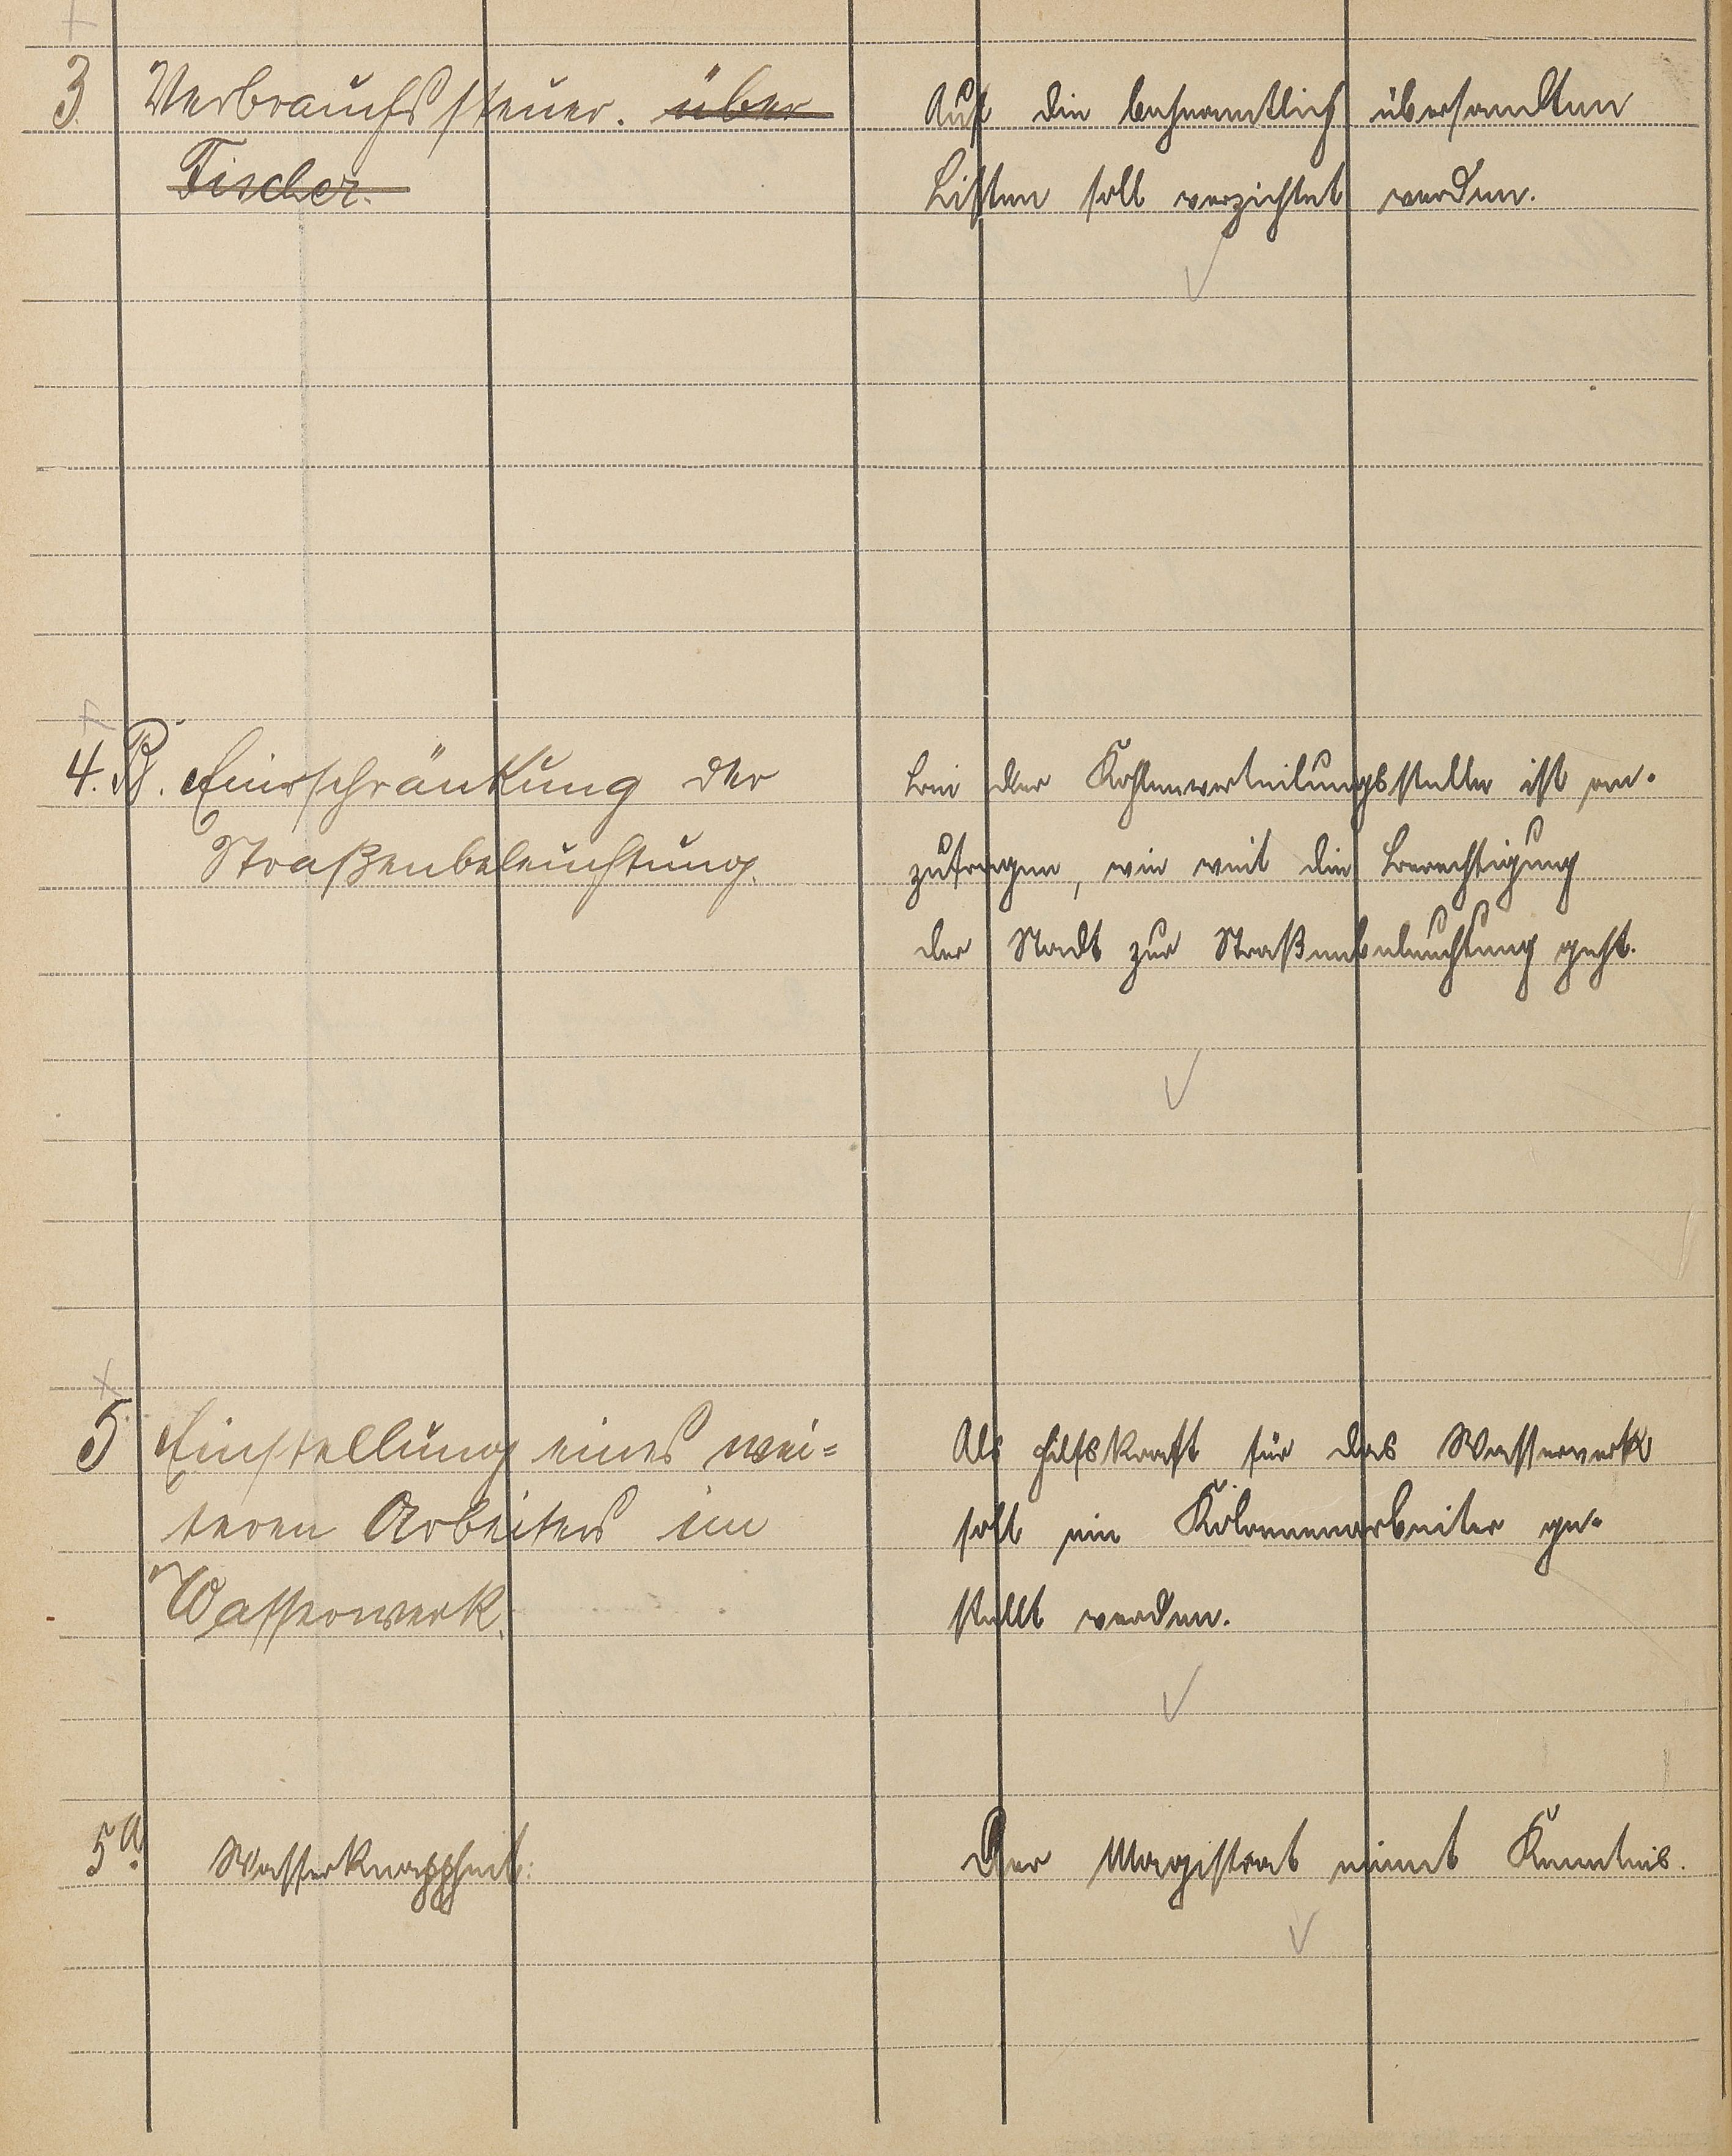 3. Verbrauchssteuer. über
Fischer.
Auf die bahnamtlich übersandten
Listen soll verzichtet werden.
4. B. Einschränkung der
Straßenbeleuchtung.
Bei der Kohlenverteilungsstelle ist an-
zufragen, wie weit die Berechtigung
der Stadt zur Straßenbeleuchtung geht.
5 Einstellung eines wei=
teren Arbeiters im
Wasserwerk.
Als Hilfskraft für das Wasserwerk
soll ein Kolonnenarbeiter ge-
stellt werden.
5a. Wasserknappheit:
Der Magistrat nimmt Kenntnis.